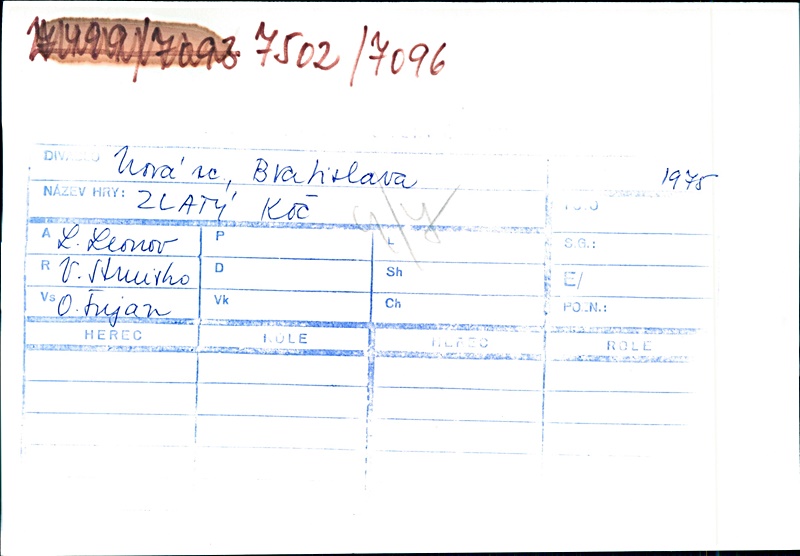 7499/7093 7502/7096
DIVADLO Nová sc, Bratislava
1975
NÁZEV HRY: ZLATÝ KOČ
A L. Leonov P L S.G.:
R V. Strnisko D Sh E/
Vs O. Šujan Vk Ch POZN.:
HEREC ROLE HEREC ROLE